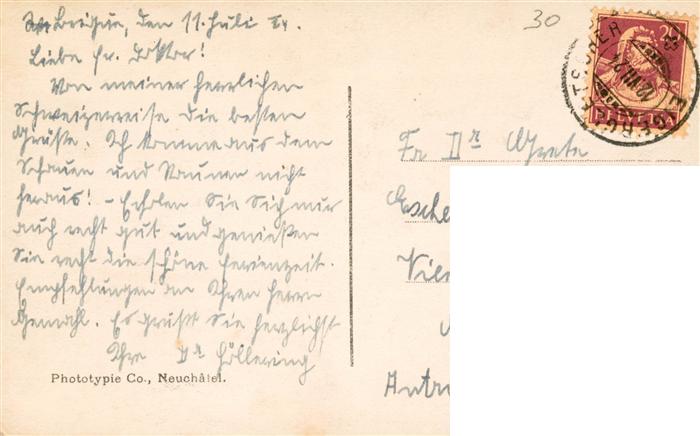 Brigue, den 11. Juli 24.
Liebe Fr. Doktor!
Von meiner herrlichen
Schweizerreise die besten
Grüße. Ich komme aus dem
Schauen und Staunen nicht
heraus! - Erholen Sie Sich nur
auch recht gut und genießen
Sie recht die schöne Ferienzeit.
Empfehlungen an Ihren Herrn
Gemahl. Es grüßt Sie herzlichst
Ihre Dr Höllering
Phototypie Co., Neuchâtel.
30
20
HELVETIA
Fr Dr Grete